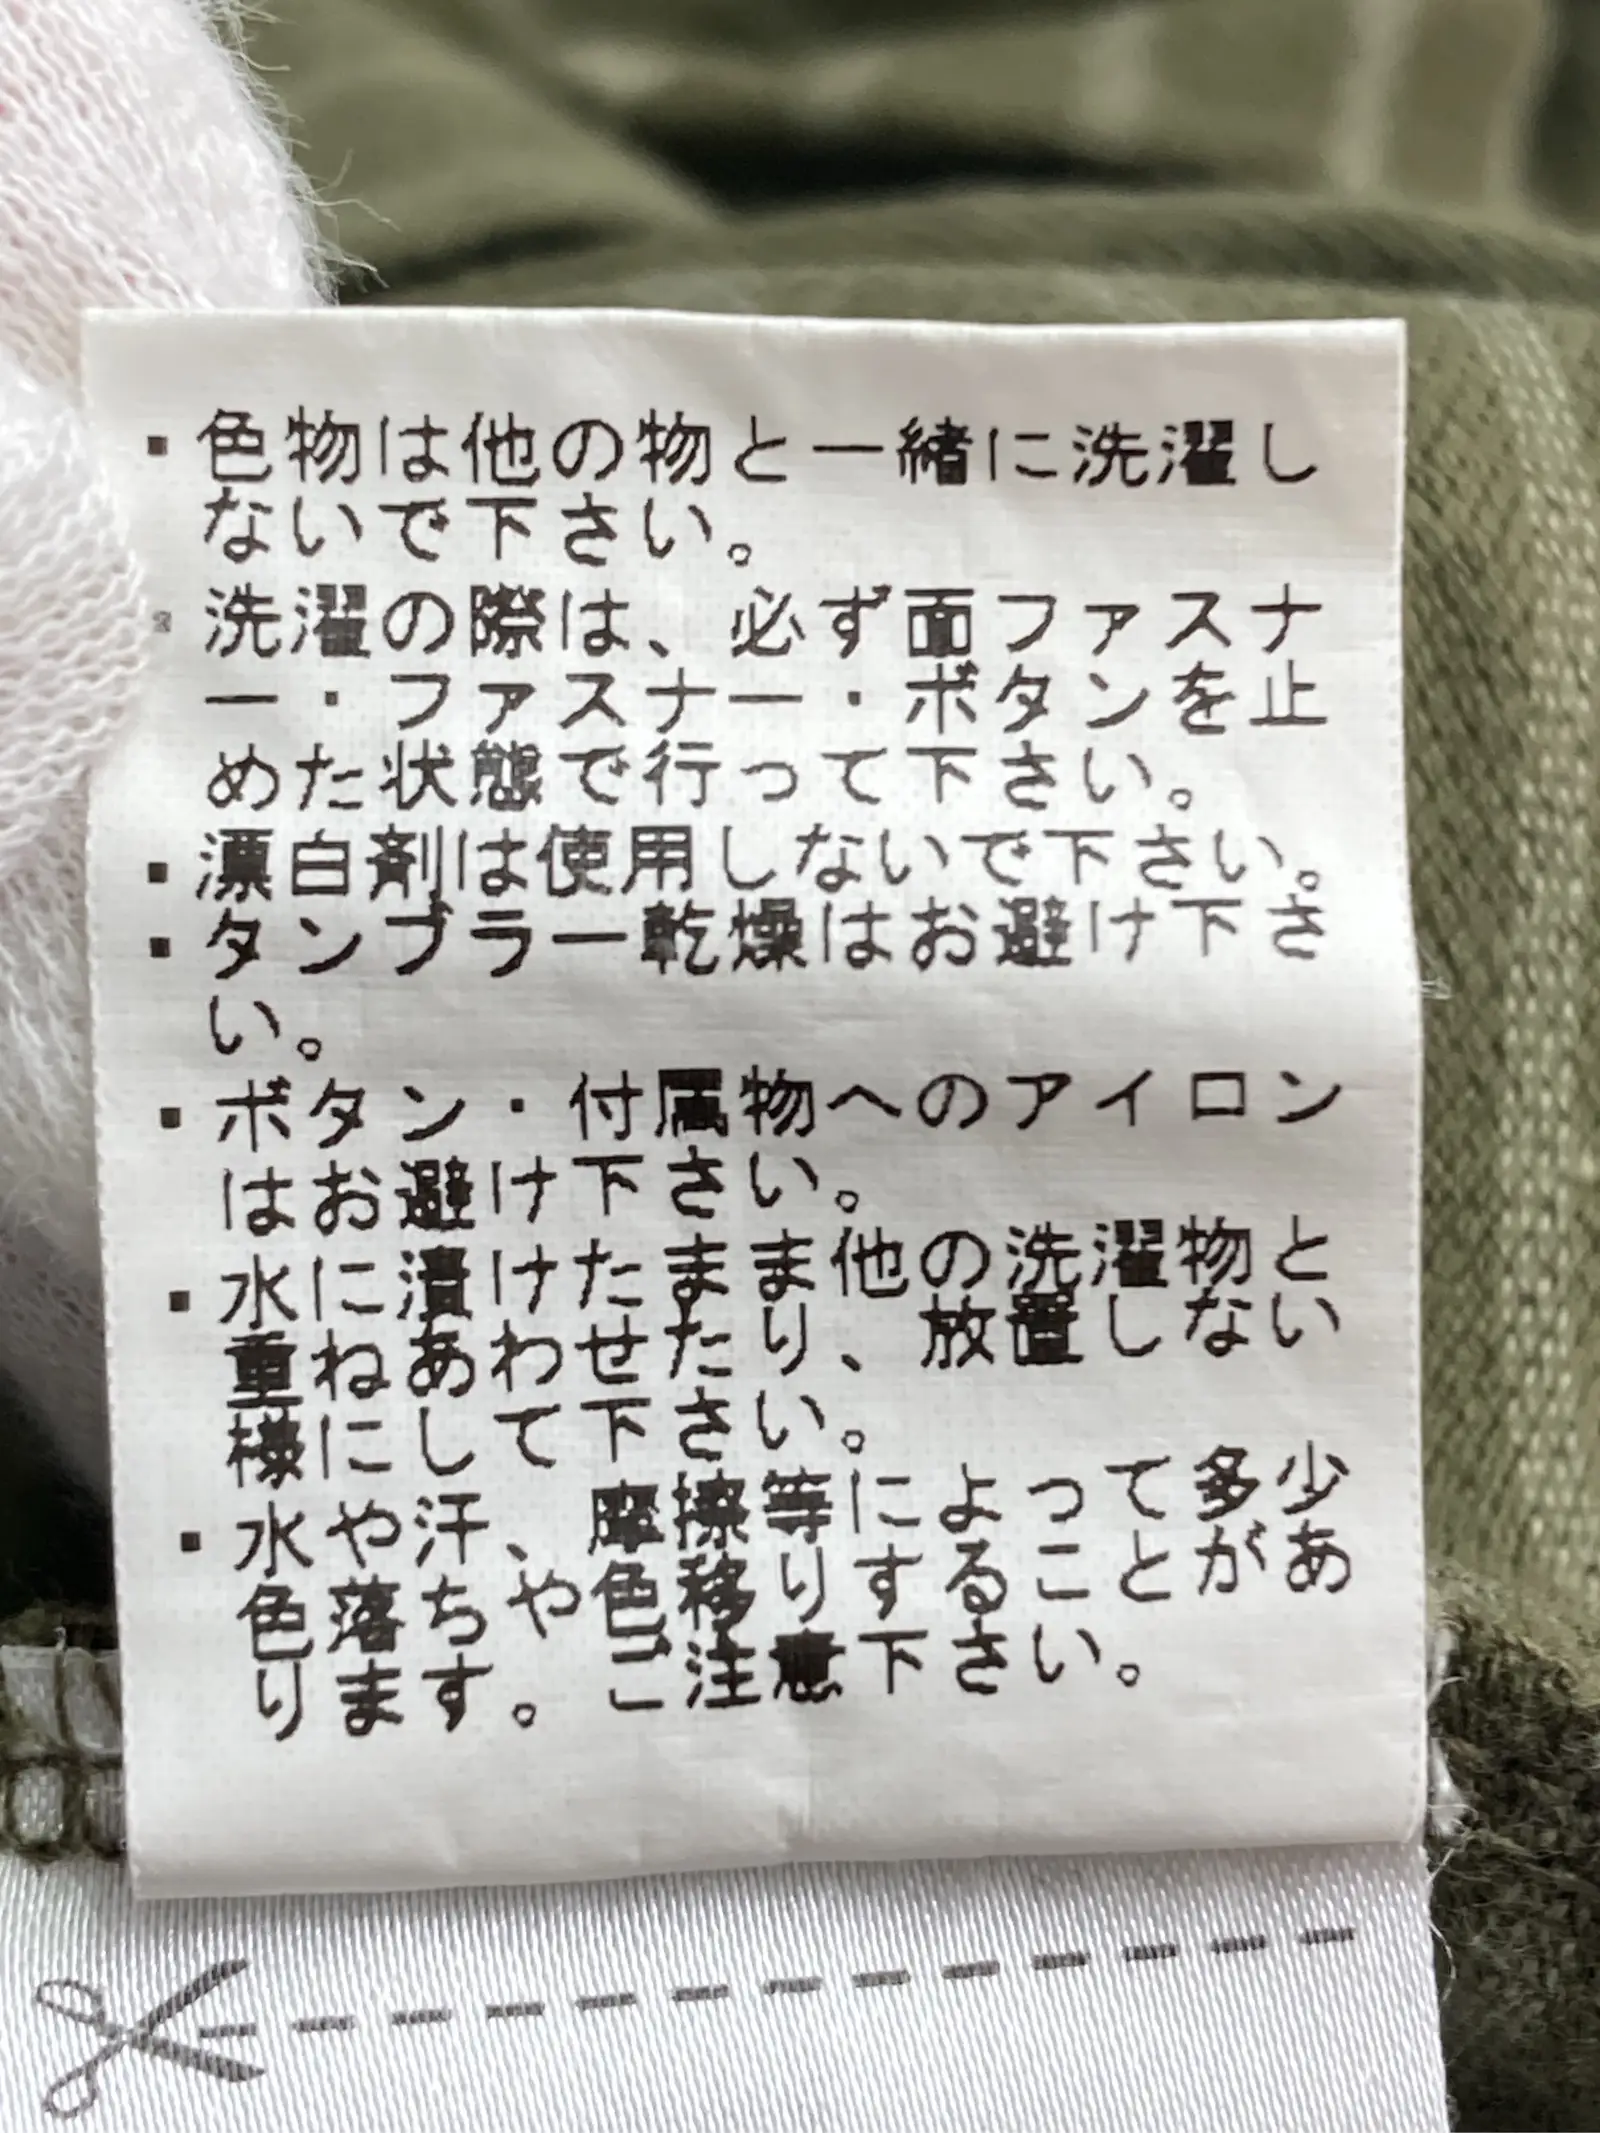 ・色物は他の物と一緒に洗濯し
ないで下さい。
・洗濯の際は、必ず面ファスナ
ー・ファスナー・ボタンを止
めた状態で行って下さい。
・漂白剤は使用しないで下さい。
・タンブラー乾燥はお避け下さ
い。
・ボタン・付属物へのアイロン
はお避け下さい。
・水に漬けたまま他の洗濯物と
重ねあわせたり、放置しない
様にして下さい。
・水や汗、摩擦等によって多少
色落ちや色移りすることがあ
ります。ご注意下さい。